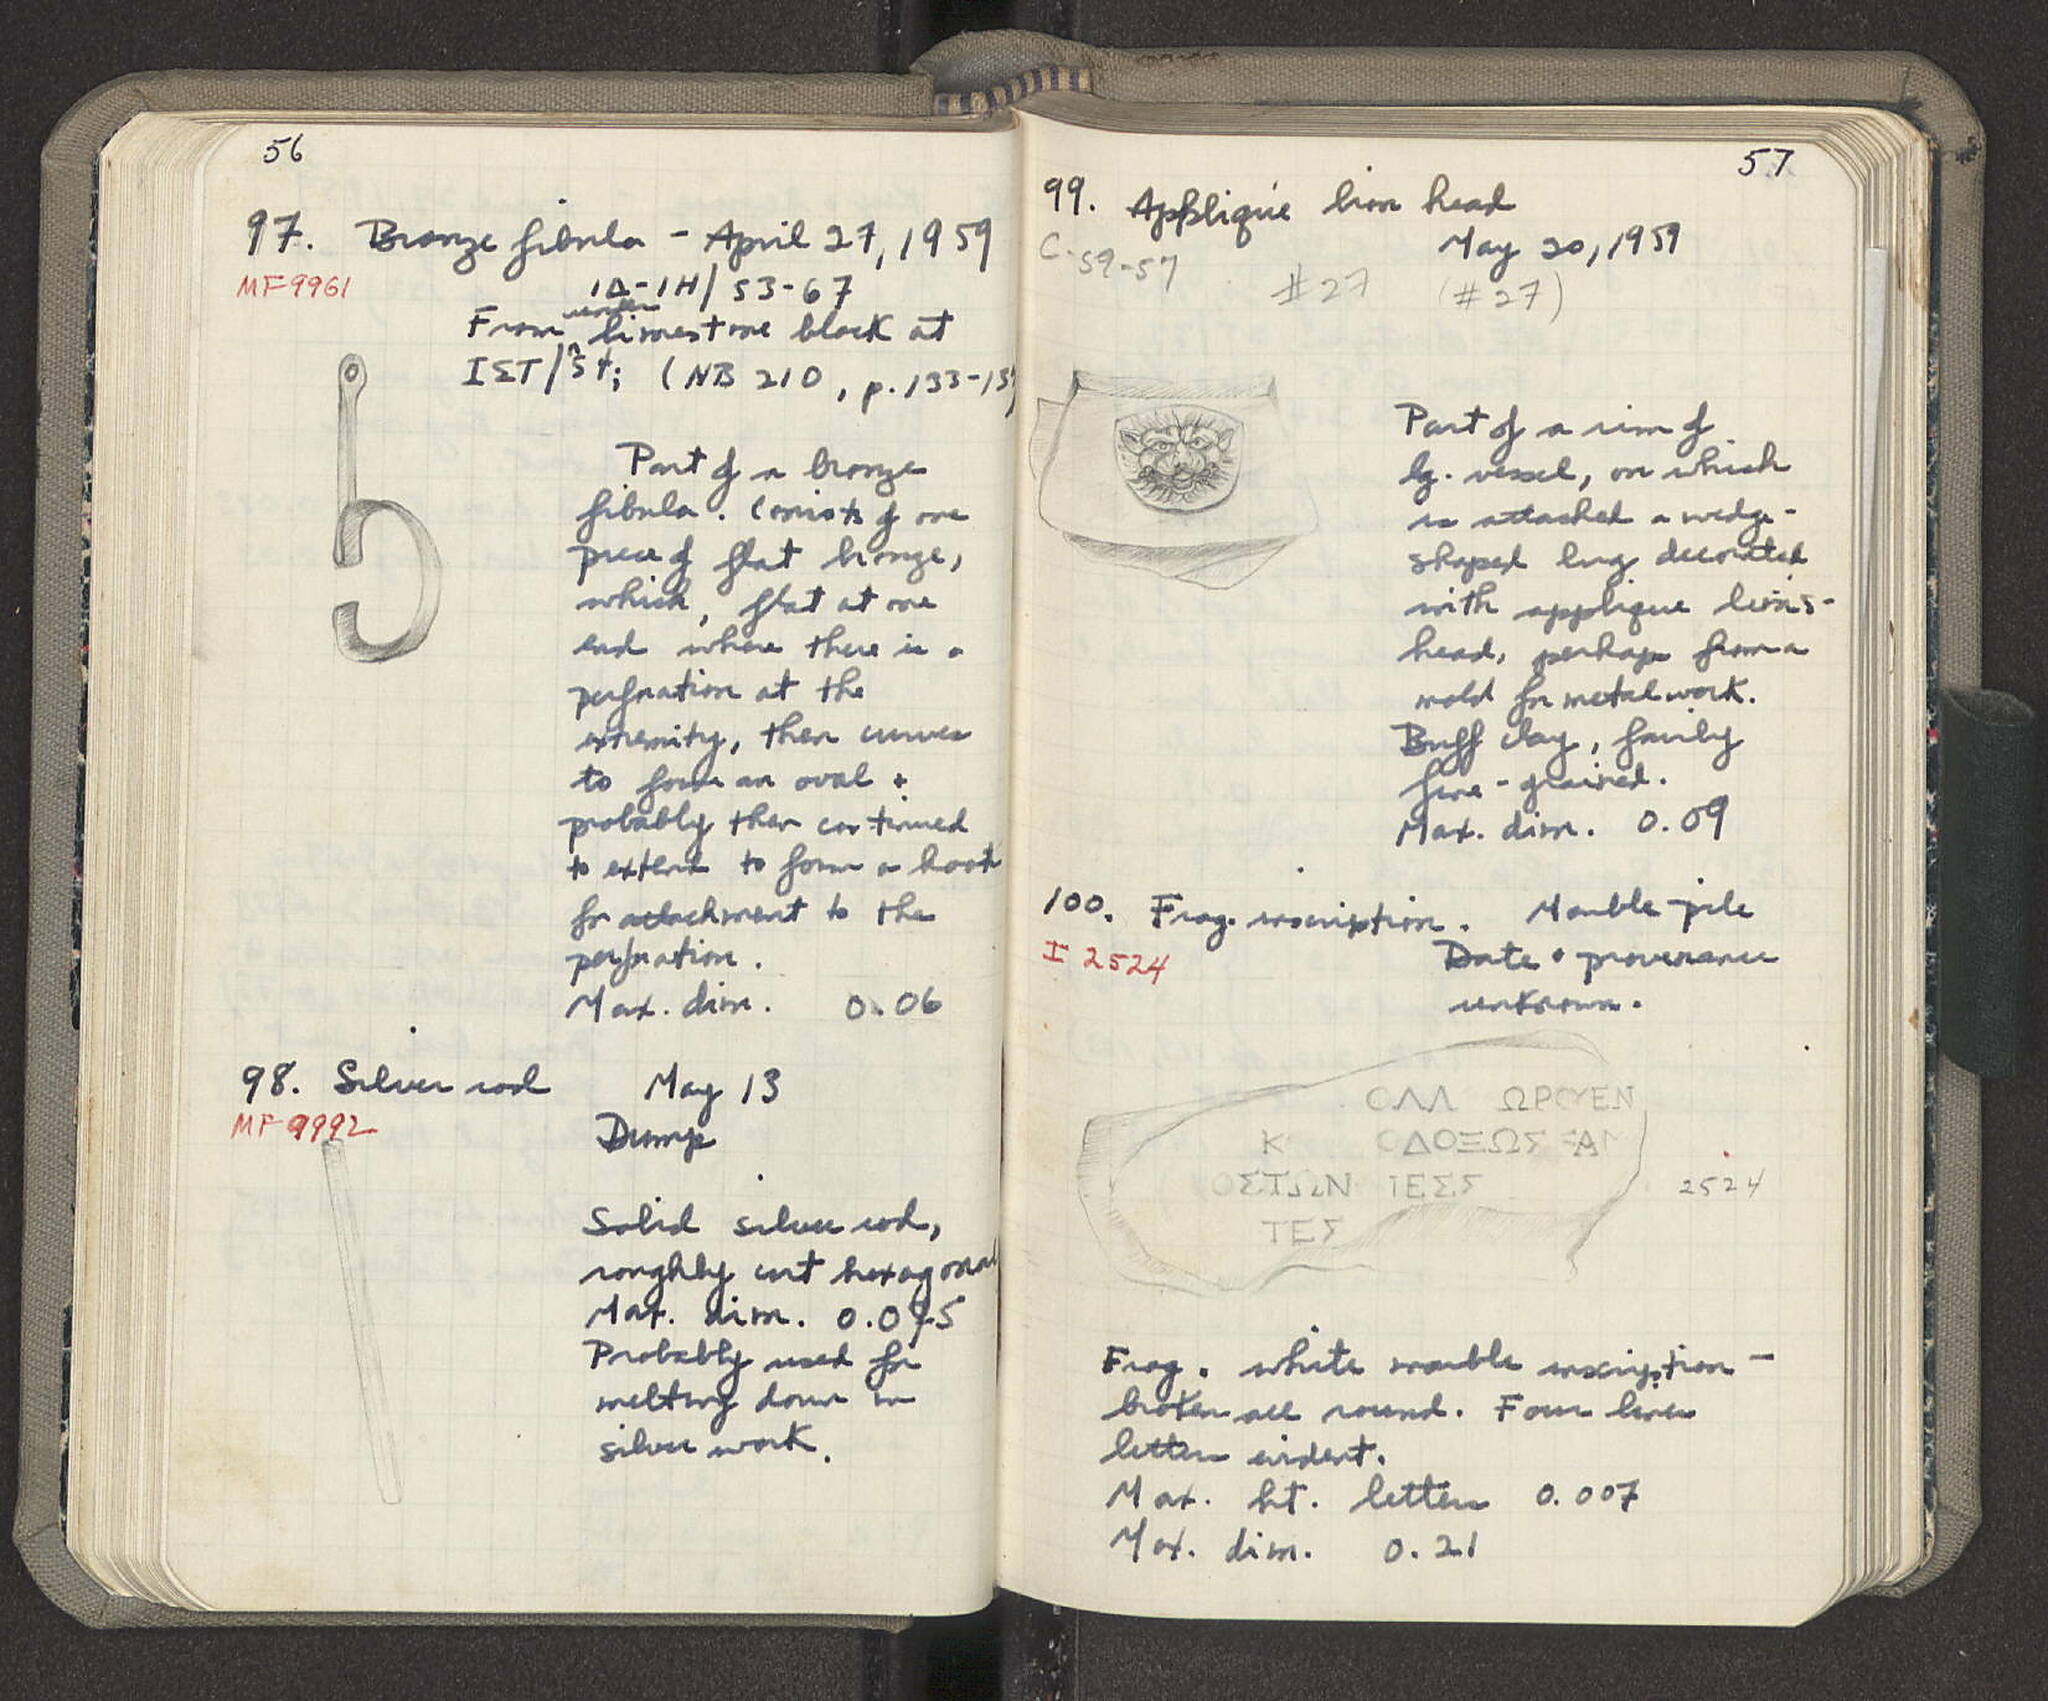 56
97. Bronze fibula - April 27, 1959
MF 9961
ΙΔ-ΙΗ/53-67
From under limestone block at
ΙΣΤ/54; (NB 210, p. 133-13
Part of a bronze
fibula. Consists of one
piece of flat bronze,
which, flat at one
end where there is a
perforation at the
extremity, then curves
to form an oval +
probably then continued
to extend to form a hook
for attachment to the
perforation.
Max. dim. 0.06
98. Silver rod May 13
MF 9992
Dump
Solid silver rod,
roughly cut hexagonal
Max. dim.
Probably used for
melting down in
silver work.
57
99. Appliqué lion head
C-59-57
May 20, 1959
#27 (#27)
Part of a rim of
lg. vessel, on which
is attached a wedge-
shaped lug decorated
with applique lion's-
head, perhaps from a
mold for metal work.
Buff clay, fairly
fine-grained.
Max. dim. 0.09
100. Frag. inscription. Marble pile
I 2524
Date + provenance
unknown.
ΟΛΛ ΩΡΟΥΕΝ
Κ ΟΔΟΞΩΣ ΑΝ
ΟΣΤΩΝ ΙΕΣΣ
2524
ΤΕΣ
Frag. white marble inscription -
broken all round. Four lines
letters evident.
Max. ht. letters 0.007
Max. dim. 0.21